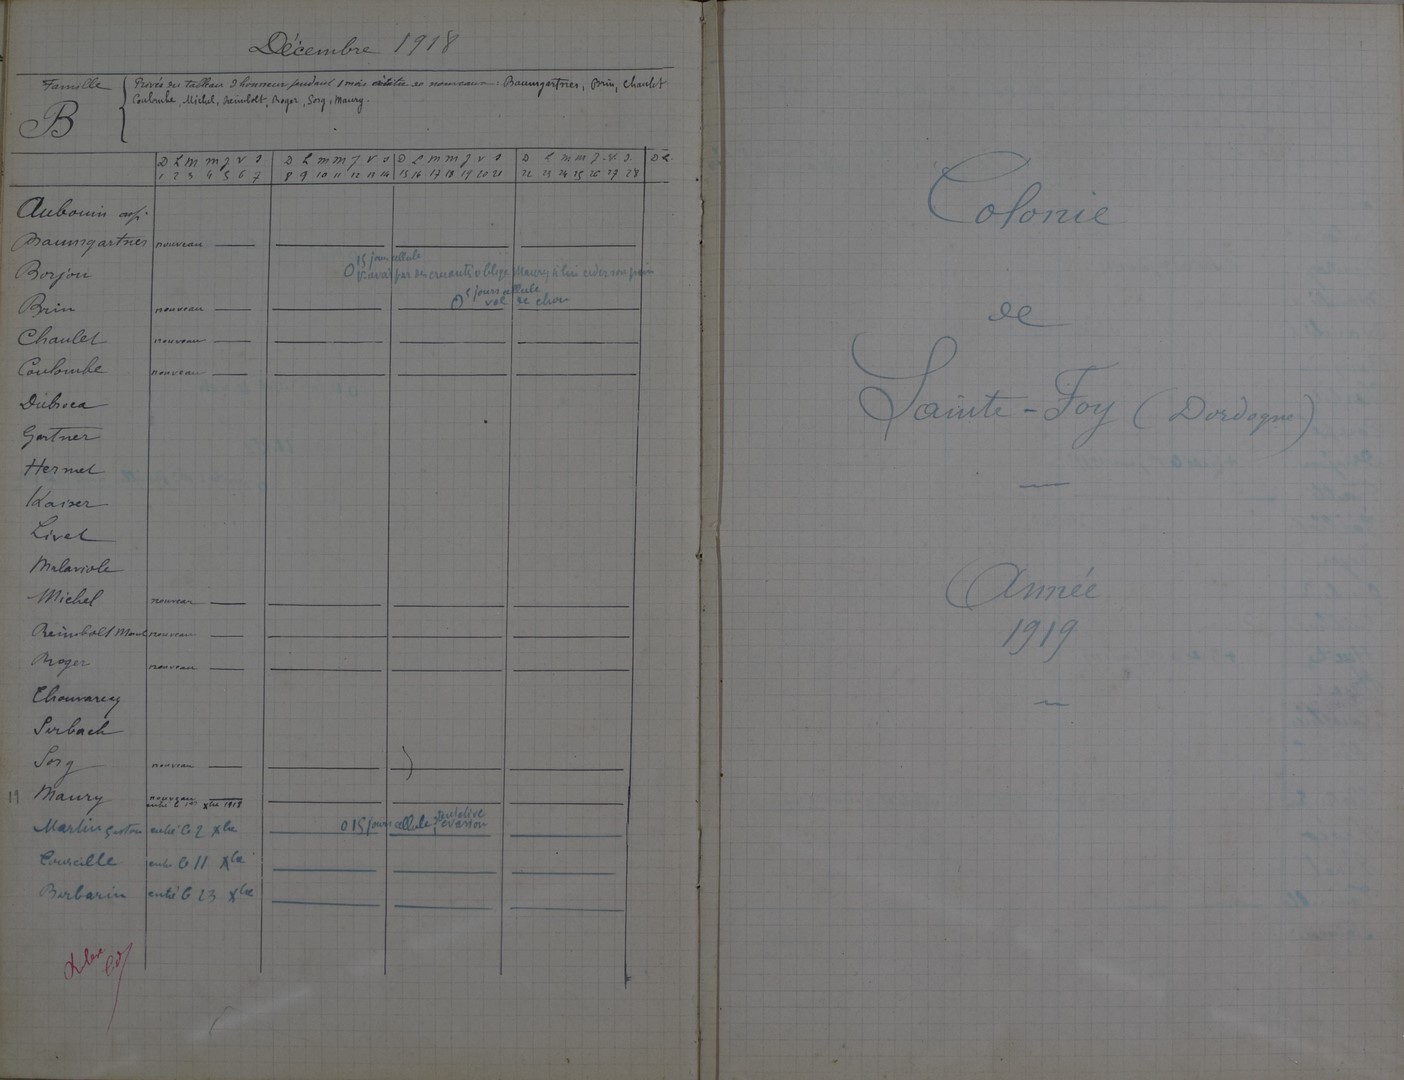 Décembre 1918
Famille
B
Privés du tableau d'honneur pendant 1 mois nouveaux : Baumgartner, Brin, Chaulet
Coulombe, Michel, Reimbolt, Roger, Sorg, Maury.
D L M M J V S D L M M J V S D L M M J V S D L M M J V S D L
1 2 3 4 5 6 7 8 9 10 11 12 13 14 15 16 17 18 19 20 21 22 23 24 25 26 27 28
Aubouin
Baumgartner nouveau
15 jours cellule
Borjou 0 par sa cruauté obligé Maury à lui céder son pain
5 jours cellule
Brin nouveau 0 vol de chou
Chaulet nouveau
Coulombe nouveau
Dubroca
Gartner
Hermet
Kaiser
Livet
Malaviole
Michel nouveau
Reimbolt nouveau
Roger nouveau
Thouvarecq
Serbach
Sorg nouveau
19 Maury nouveau
entré le 1er Xbre 1918
Martin Gaston entré le 2 Xbre 0 15 jours cellule tentative évasion
Courcelle entré le 11 Xbre
Barbarin entré le 23 Xbre
Colonie
de
Sainte-Foy (Dordogne)
Année
1919